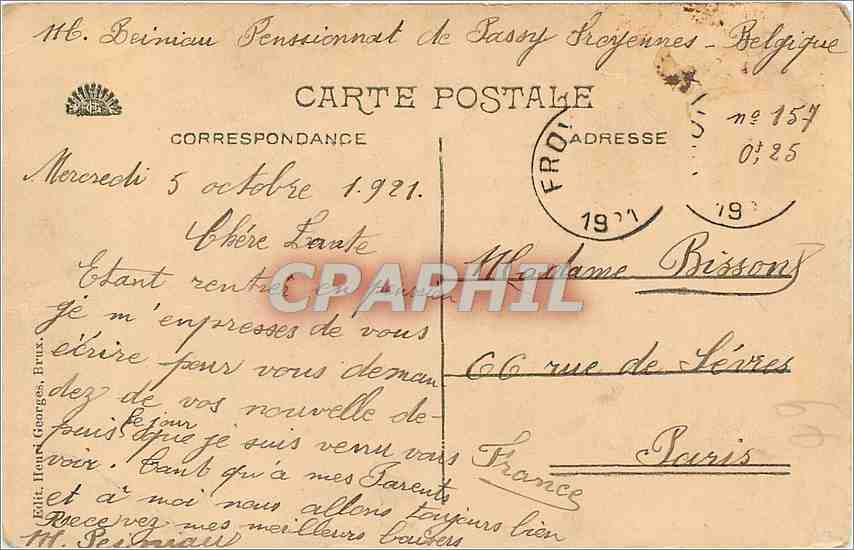 M. Peiniau Penssionnat de Passy Froyennes - Belgique
CARTE POSTALE
CORRESPONDANCE
ADRESSE
FRO
1921
19
nº 157
0f,25
Mercredi 5 octobre 1.921.
Chére Tante
Etant rentrer en pension
je m'enpresses de vous
écrire pour vous deman
dez de vos nouvelle de-
puis le jour que je suis venu vous
voir. Tant qu'a mes Parents
et à moi nous allons toujours bien
Recevez mes meilleurs baisers
M. Peiniau
Madame Bisson
66 rue de Sévres
Paris
France
Edit. Henri Georges, Brux.
CPAPHIL